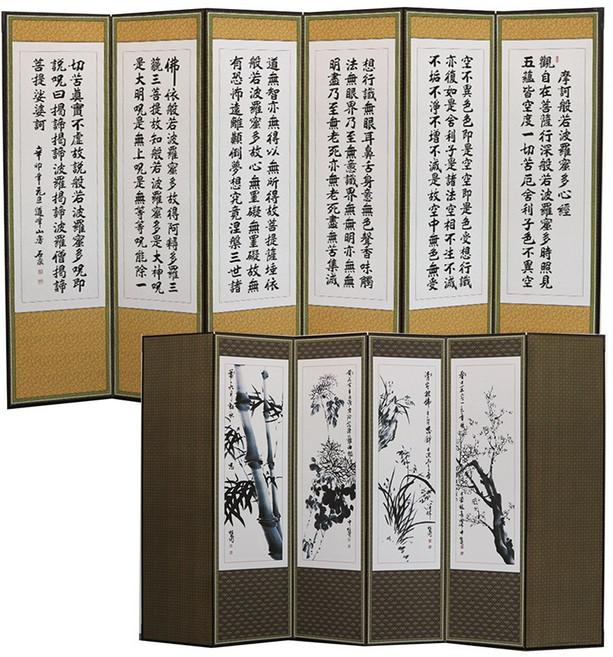 摩訶般若波羅蜜多心經
觀自在菩薩行深般若波羅蜜多時照見
五蘊皆空度一切苦厄舍利子色不異空
空不異色色即是空空即是色受想行識
亦復如是舍利子是諸法空相不生不滅
不垢不淨不增不減是故空中無色無受
想行識無眼耳鼻舌身意無色聲香味觸
法無眼界乃至無意識界無無明亦無無
明盡乃至無老死亦無老死盡無苦集滅
道無智亦無得以無所得故菩提薩埵依
般若波羅蜜多故心無罣礙無罣礙故無
有恐怖遠離顚倒夢想究竟涅槃三世諸
佛依般若波羅蜜多故得阿耨多羅三
藐三菩提故知般若波羅蜜多是大神呪
是大明呪是無上呪是無等等呪能除一
切苦眞實不虛故說般若波羅蜜多呪即
說呪曰揭諦揭諦波羅揭諦波羅僧揭諦
菩提娑婆訶
辛卯年元旦道峰山房